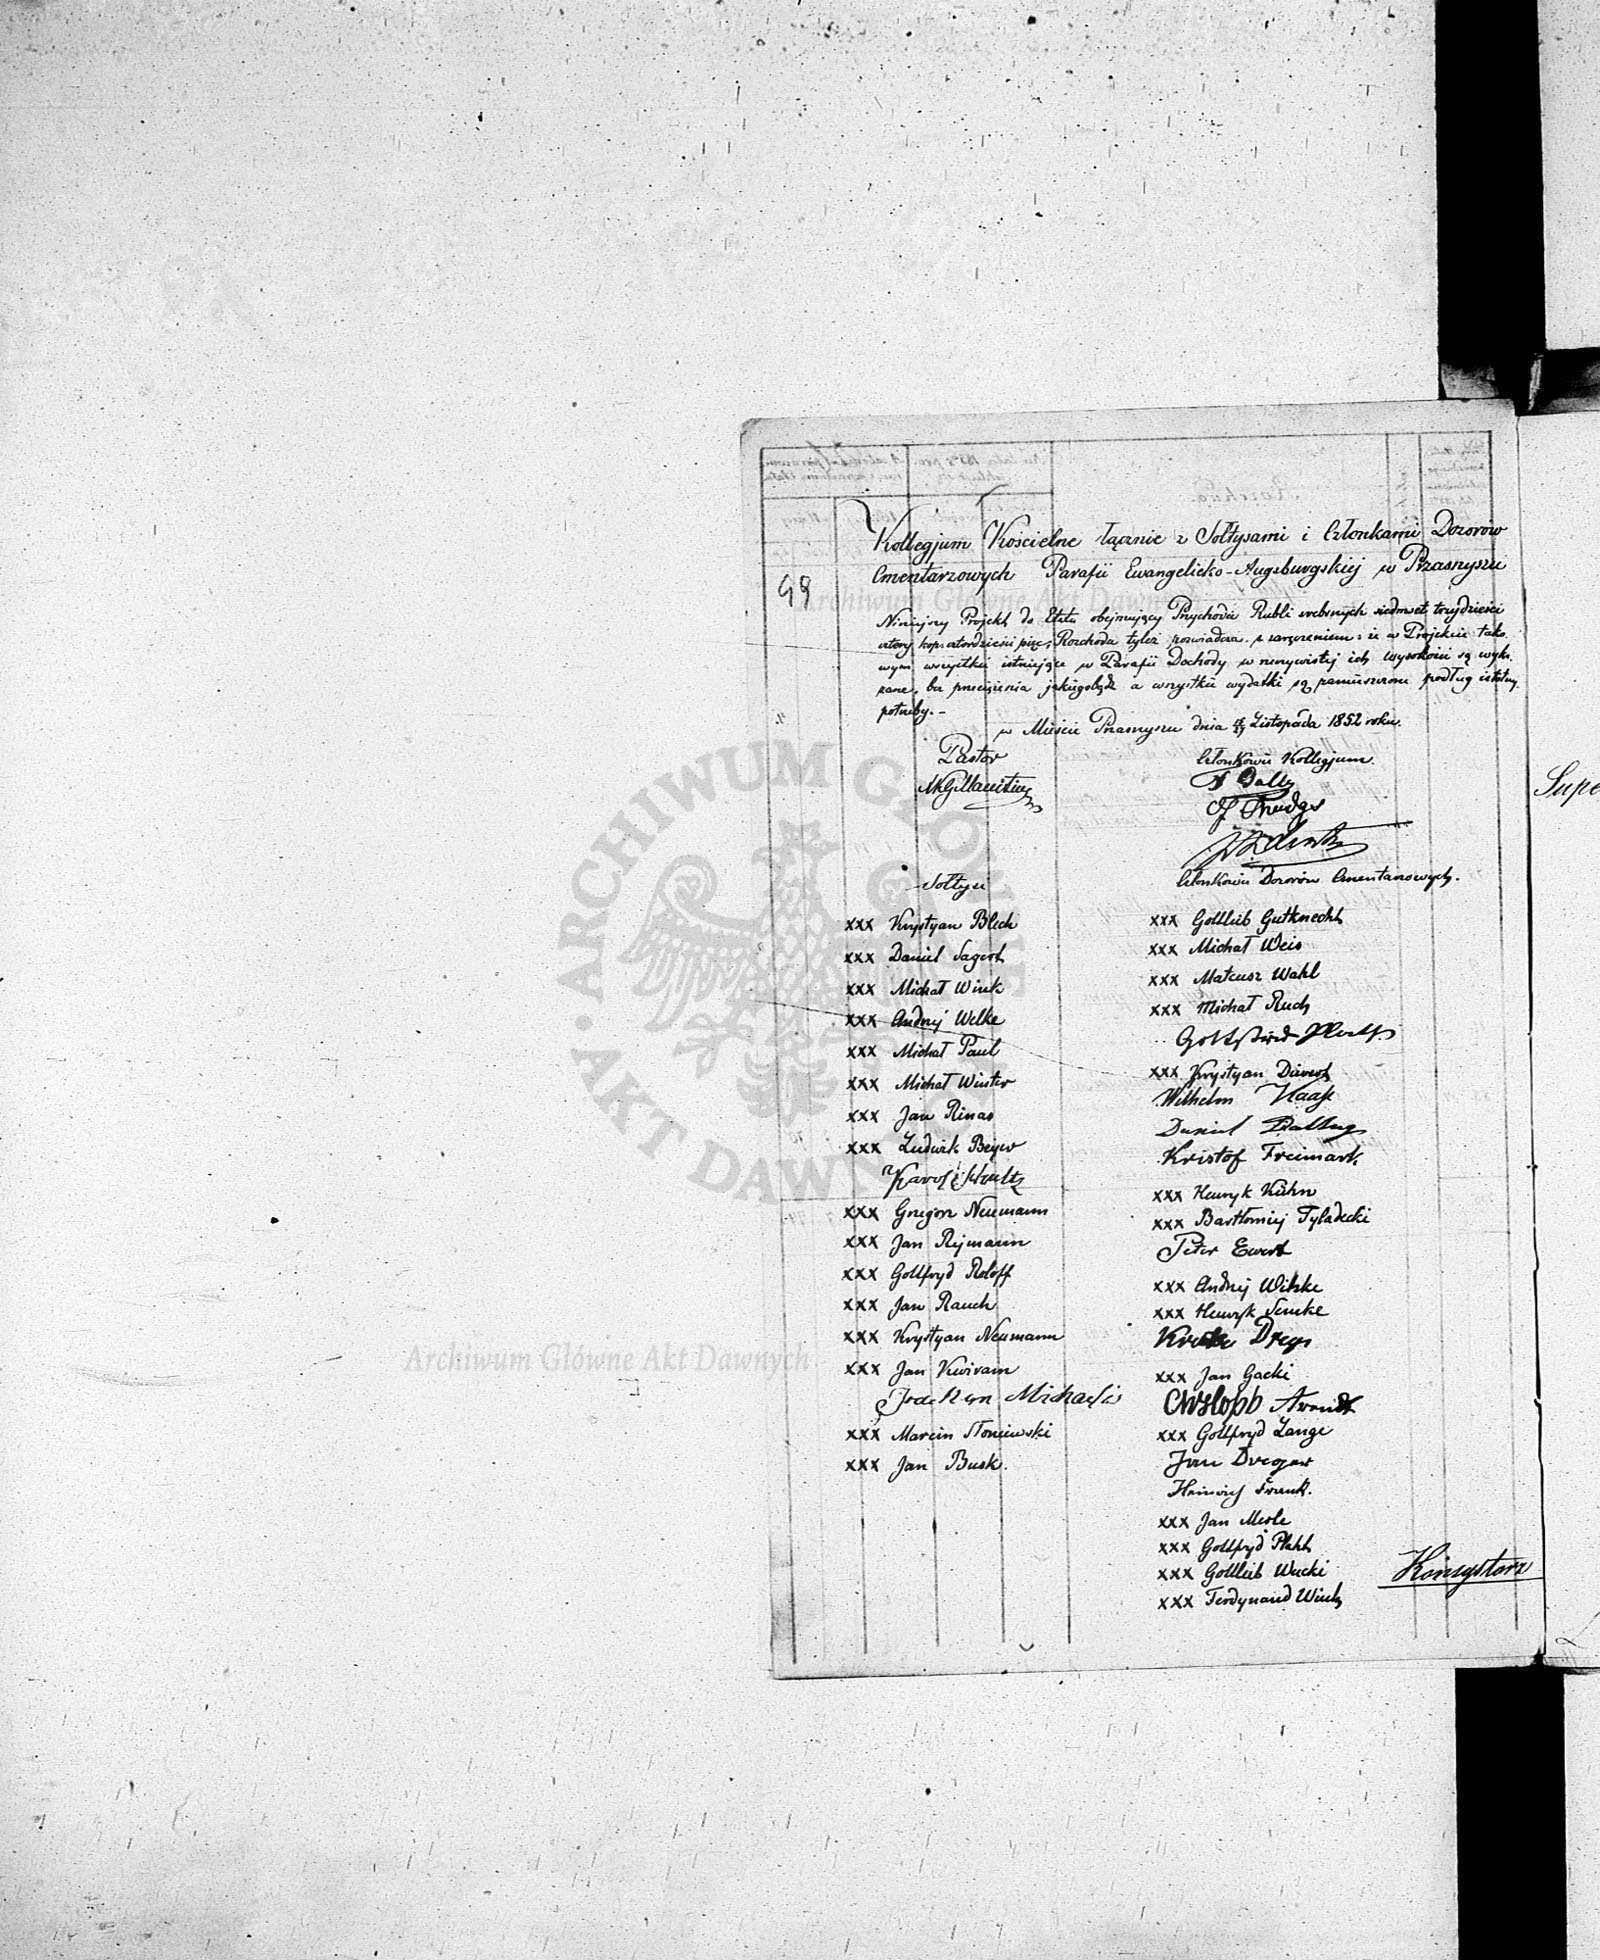 99
Kollegjum Kościelne łącznie z Sołtysami i Członkami Dozorów
Cmentarzowych Parafii Ewangelicko-Augsburgskiej w Przasnyszu
Niniejszy Projekt do Etatu obejmujący Przychodu Rubli srebrnych siedmset trzydzieści
cztery kop: czterdzieści pięć, Rozchodu tyleż poswiadcza, z zaręczeniem: że w Projekcie tako
wym wszystkie istniejące w Parafii Dochody w rzeczywistej ich wysokości są wyka
zane, bez jakiegobądź a wszystkie wydatki są zamieszczone podług istotnej
potrzeby.-
w Mieście Przasnyszu dnia Listopada 1852 roku.
Pastor
Członkowie Kollegjum.
Sołtysi
Członkowie Dozorów Cmentarzowych.
xxx Krystyan Blech
xxx Gottlieb Gutknecht
xxx Daniel Sagert
xxx Michał Weis
xxx Michał Wink
xxx Mateusz Wahl
xxx Andrzej Welke
xxx Michał Ruch
xxx Michał Paul
Gottfried
xxx Michał Winter
xxx Krystyan
Wilhelm Haase
xxx Jan Rinas
Daniel
xxx Ludwik Beyer
Kristof Freimark
Karol Schultz
xxx Henryk Kühn
xxx Grzegorz Neumann
xxx Bartłomiej Tyladecki
xxx Jan Rejmann
Peter Ewert
xxx Gottfryd Roloff
xxx Andrzej Witzke
xxx Jan Rauch
xxx Henryk Semke
xxx Krystyan Neumann
xxx Jan Kwiram
xxx Jan Gacki
Michaelis
Arendt
xxx Marcin Słoniewski
xxx Gottfryd Lange
xxx Jan Busk.
Jan Dreger
Heinrich Frank.
xxx Jan Mesle
xxx Gottfryd Plath
xxx Gottlieb Wucki
xxx Ferdynand Wink
Konsystorz
Supe
ARCHIWUM GŁÓWNE AKT DAWNYCH
Archiwum Główne Akt Dawnych
Archiwum Główne Akt Dawnych